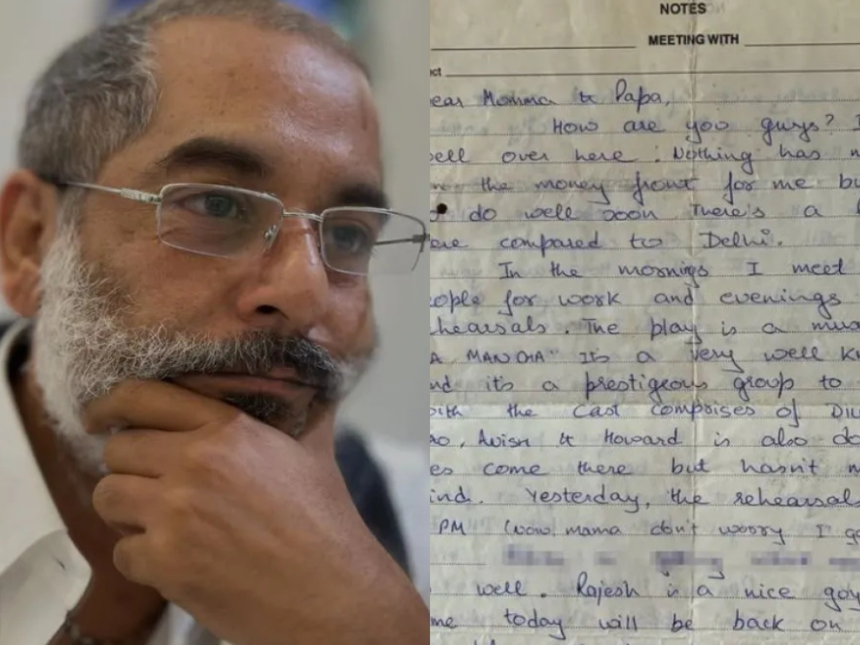 NOTES
MEETING WITH
ear Momma & Papa,
How are you guys? I
ell over here. Nothing has
the money front for me bu
do well soon There's a
ere compared to Delhi.
In the mornings I meet
ople for work and evenings
hearsals. The play is a mus
A MANCHA" It's a very well k
nd it's a prestigeous group to
ith the cast comprises of Di
AO, Avish & Howard is also do
es come there but hasn't m
ind. Yesterday, the rehearsal
PM (wow, mama don't worry I go
well. Rajesh is a nice guy
me today will be back on